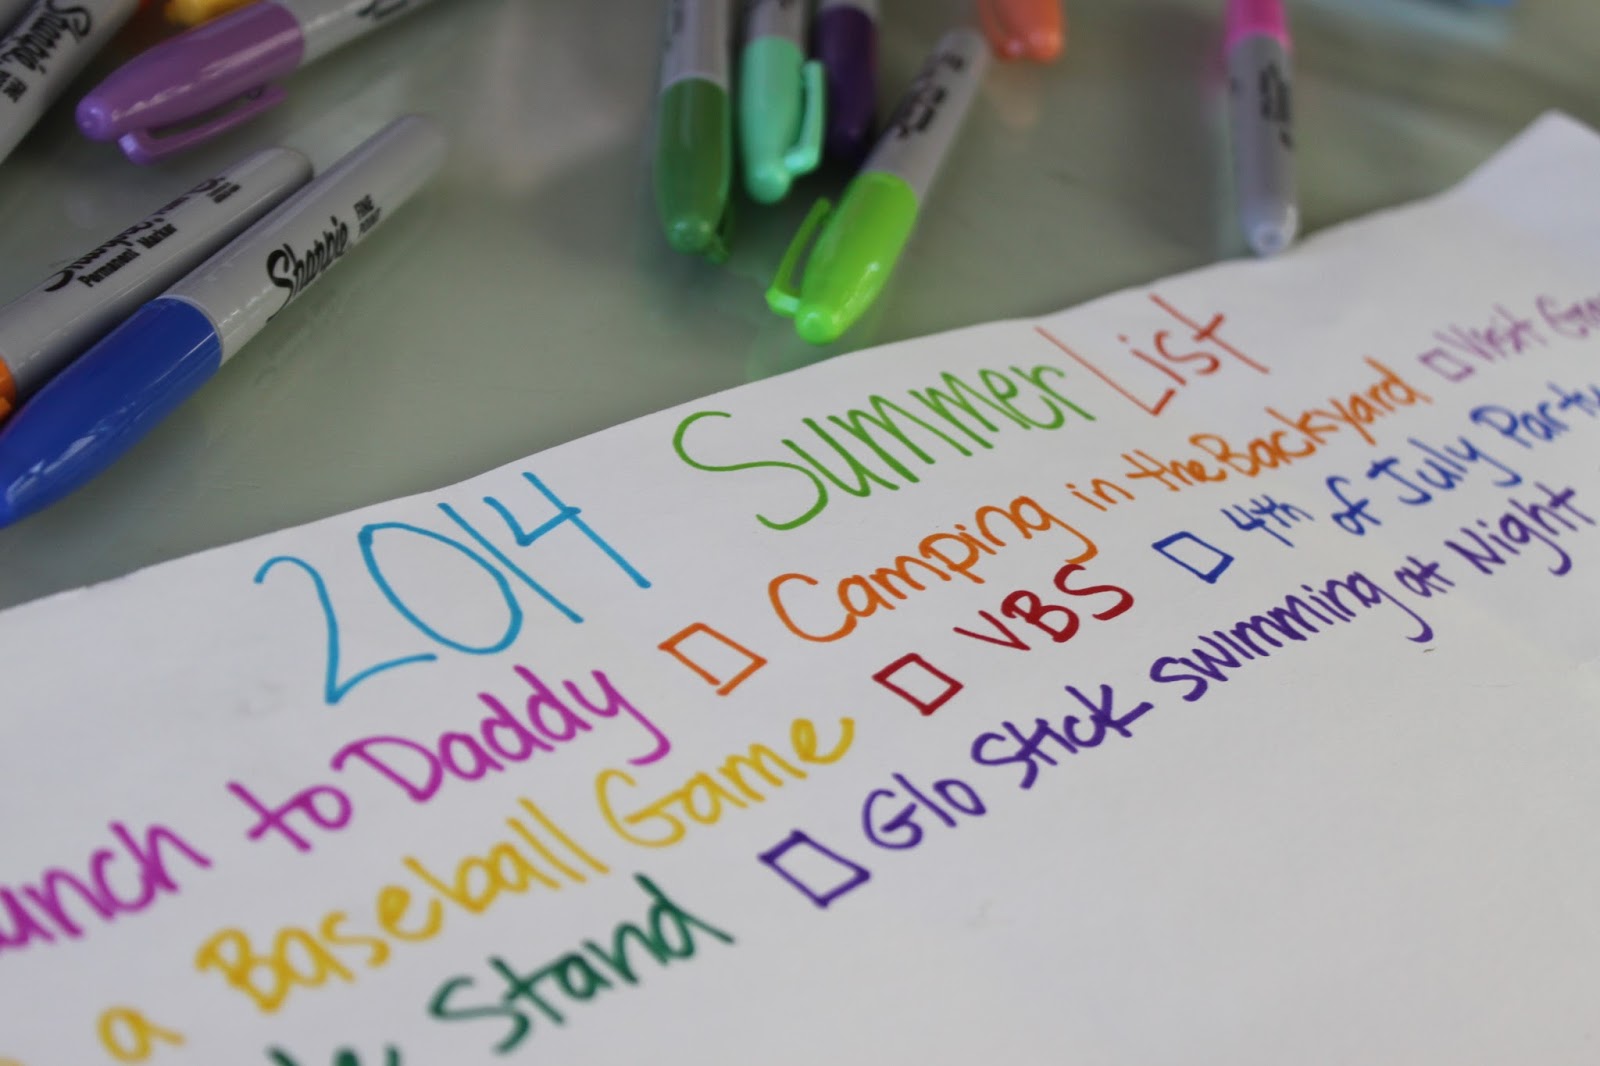 Sharpie
Permanent Marker
Sharpie
FINE
2014 Summer List
to Daddy □ Camping in the Backyard □ Visit
a Baseball Game □ VBS □ 4th of July Party
Stand □ Glo Stick Swimming at Night